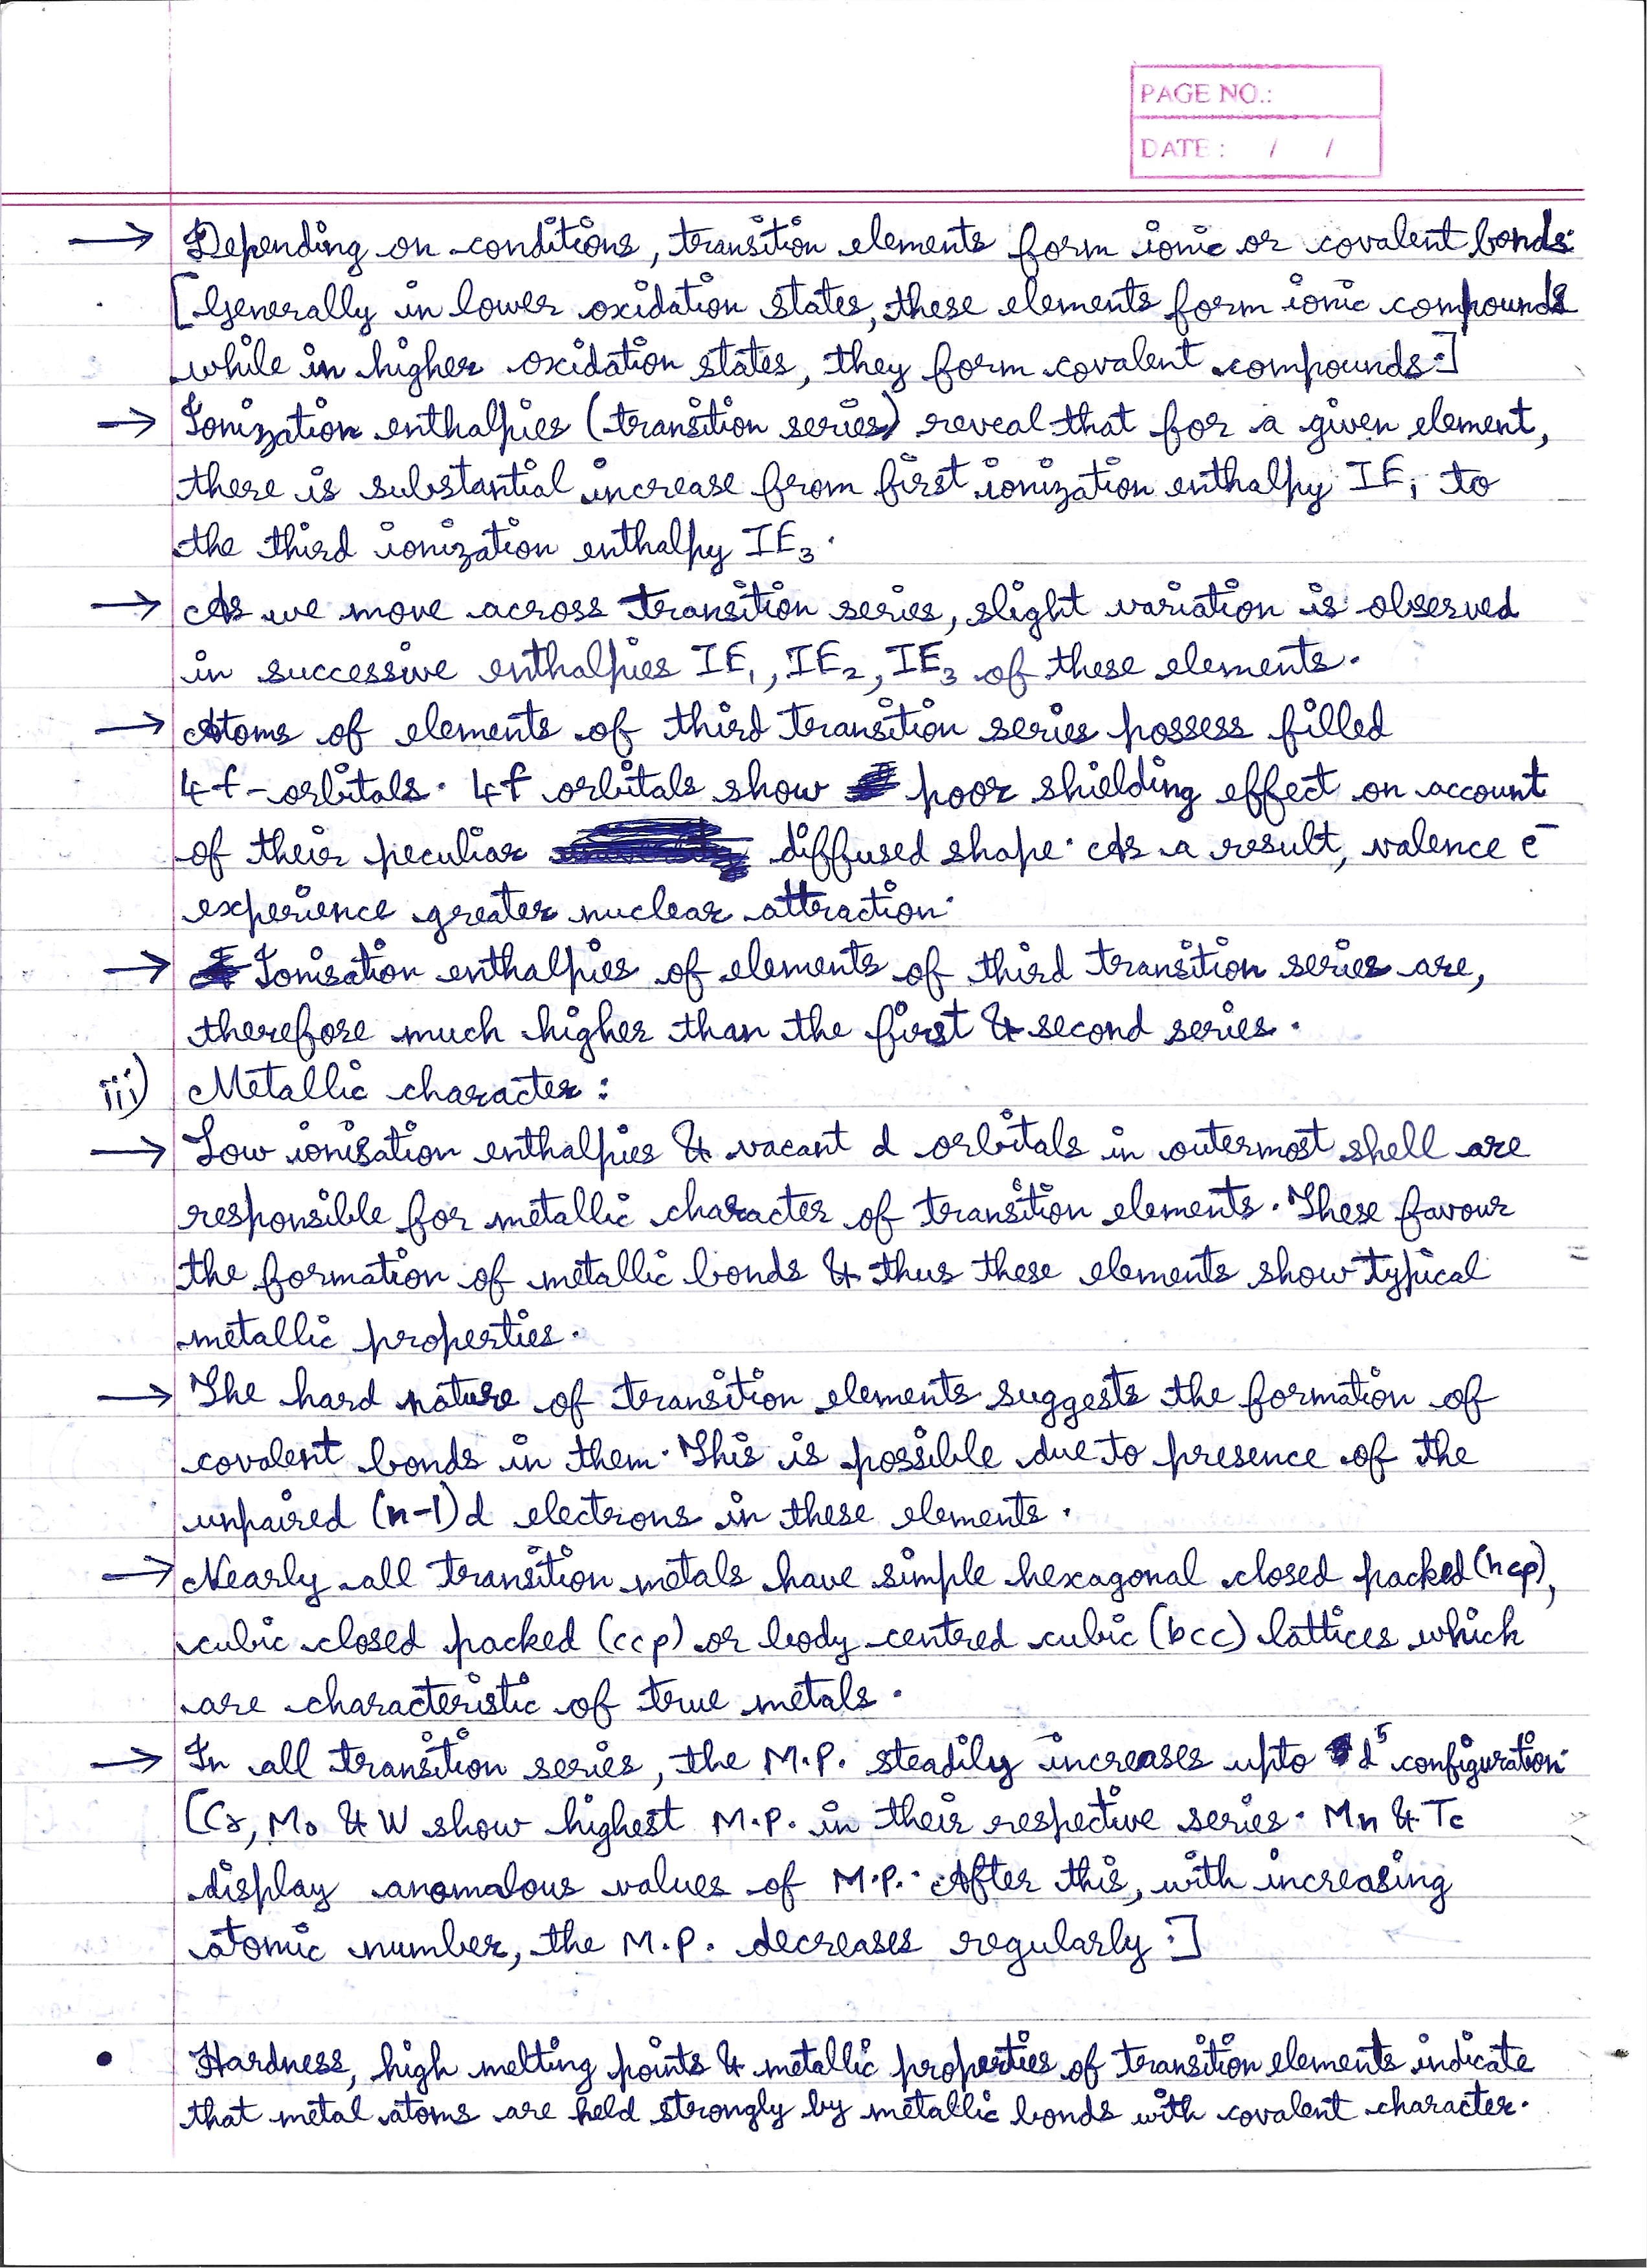 PAGE NO.:
DATE : / /
→ Depending on conditions, transition elements form ionic or covalent bonds.
[Generally in lower oxidation states, these elements form ionic compounds
while in higher oxidation states, they form covalent compounds.]
→ Ionization enthalpies (transition series) reveal that for a given element,
there is substantial increase from first ionization enthalpy IE₁ to
the third ionization enthalpy IE₃.
→ As we move across transition series, slight variation is observed
in successive enthalpies IE₁, IE₂, IE₃ of these elements.
→ Atoms of elements of third transition series possess filled
4f-orbitals. 4f orbitals show poor shielding effect on account
of their peculiar diffused shape. As a result, valence e⁻
experience greater nuclear attraction.
→ Ionisation enthalpies of elements of third transition series are,
therefore much higher than the first & second series.
iii) Metallic character:
→ Low ionisation enthalpies & vacant d orbitals in outermost shell are
responsible for metallic character of transition elements. These favour
the formation of metallic bonds & thus these elements show typical
metallic properties.
→ The hard nature of transition elements suggests the formation of
covalent bonds in them. This is possible due to presence of the
unpaired (n-1)d electrons in these elements.
→ Nearly all transition metals have simple hexagonal closed packed (hcp),
cubic closed packed (ccp) or body centred cubic (bcc) lattices which
are characteristic of true metals.
→ In all transition series, the M.P. steadily increases upto d⁵ configuration.
[Cr, Mo & W show highest M.P. in their respective series. Mn & Tc
display anomalous values of M.P. After this, with increasing
atomic number, the M.P. decreases regularly.]
• Hardness, high melting points & metallic properties of transition elements indicate
that metal atoms are held strongly by metallic bonds with covalent character.